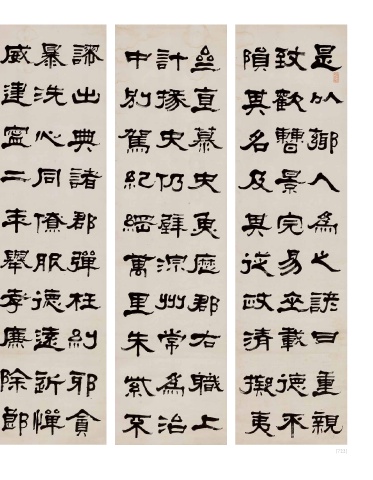 是以鄉人為之諺曰重親
致歡曹景完易世載德不
隕其名及其從政清擬夷
齊直慕史魚歷郡右職上
計掾史仍辟涼州常為治
中別駕紀綱萬里朱紫不
謬出典諸郡彈枉糾邪貪
暴洗心同僚服德遠近憚
威建寧二年舉孝廉除郎